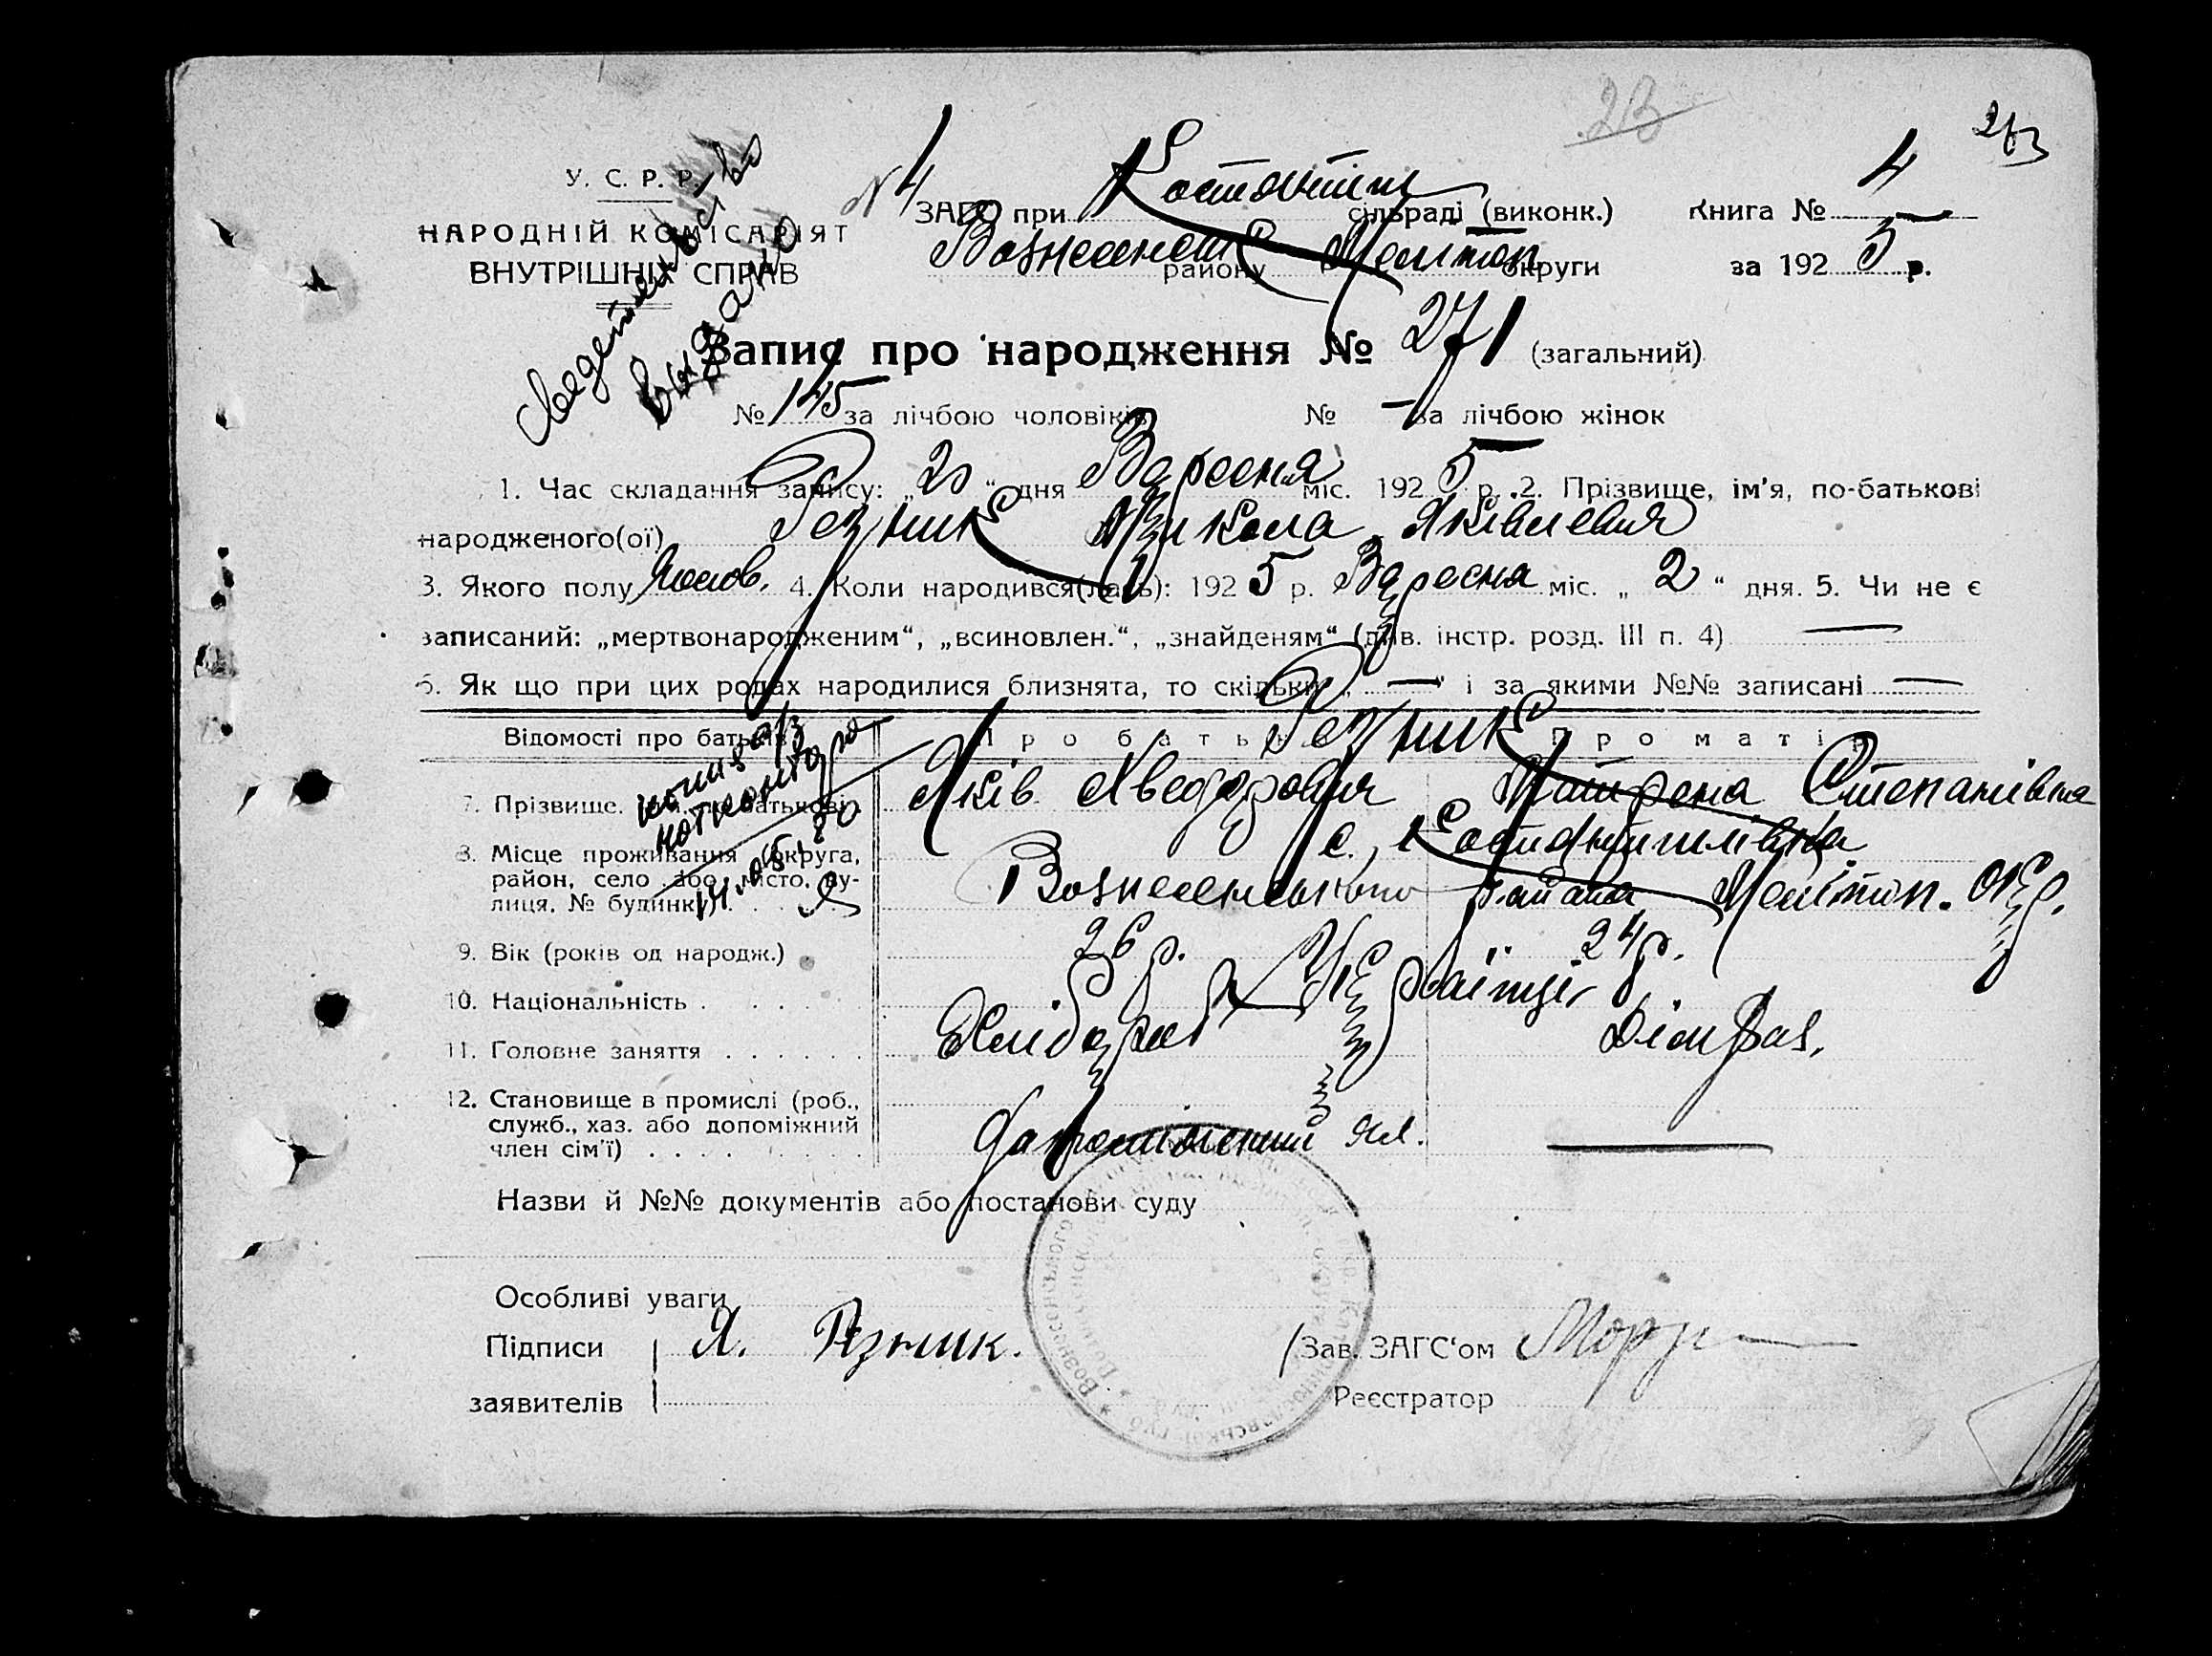 23
273
У. С. Р. Р.
НАРОДНІЙ КОМІСАРІЯТ
ВНУТРІШНІХ СПРАВ
Сведетельство
выдано
№ 4
ЗАГС при Костянтин сільраді (виконк.) Книга № 4
Вознесенськ району Мелітоп округи за 1925 р.
Запис про народження № 271 (загальний)
№ 145 за лічбою чоловіків № — за лічбою жінок
1. Час складання запису: „20“ дня Вересня міс. 1925 р. 2. Прізвище, ім'я, по-батькові
народженого(ої) Резник Микола Яківлевич
3. Якого полу чолов. 4. Коли народився(лась): 1925 р. Вересня міс. „2“ дня. 5. Чи не є
записаний: „мертвонародженим“, „всиновлен.“, „знайденям“ (див. інстр. розд. III п. 4) —
6. Як що при цих родах народилися близнята, то скільки „—“ і за якими №№ записані —
Відомості про батьків Про батька Про матір
Резник
7. Прізвище, ім'я, по-батькові Яків Хведорович Мотрена Степанівна
с. Костянтинівка
8. Місце проживання (округа,
район, село або місто, ву-
лиця, № будинку) Вознесенського району Мелітоп. Окр.
копия
нотконтора
14.05.80
9. Вік (років од народж.) 26 р. 24 р.
10. Національність Українці
11. Головне заняття Хлібороб Дом
12. Становище в промислі (роб.,
служб., хаз. або допоміжний
член сім'ї) чл. —
Назви й №№ документів або постанови суду
Особливі уваги
Підписи Я. Рзник. Зав. ЗАГС'ом
заявителів Реєстратор